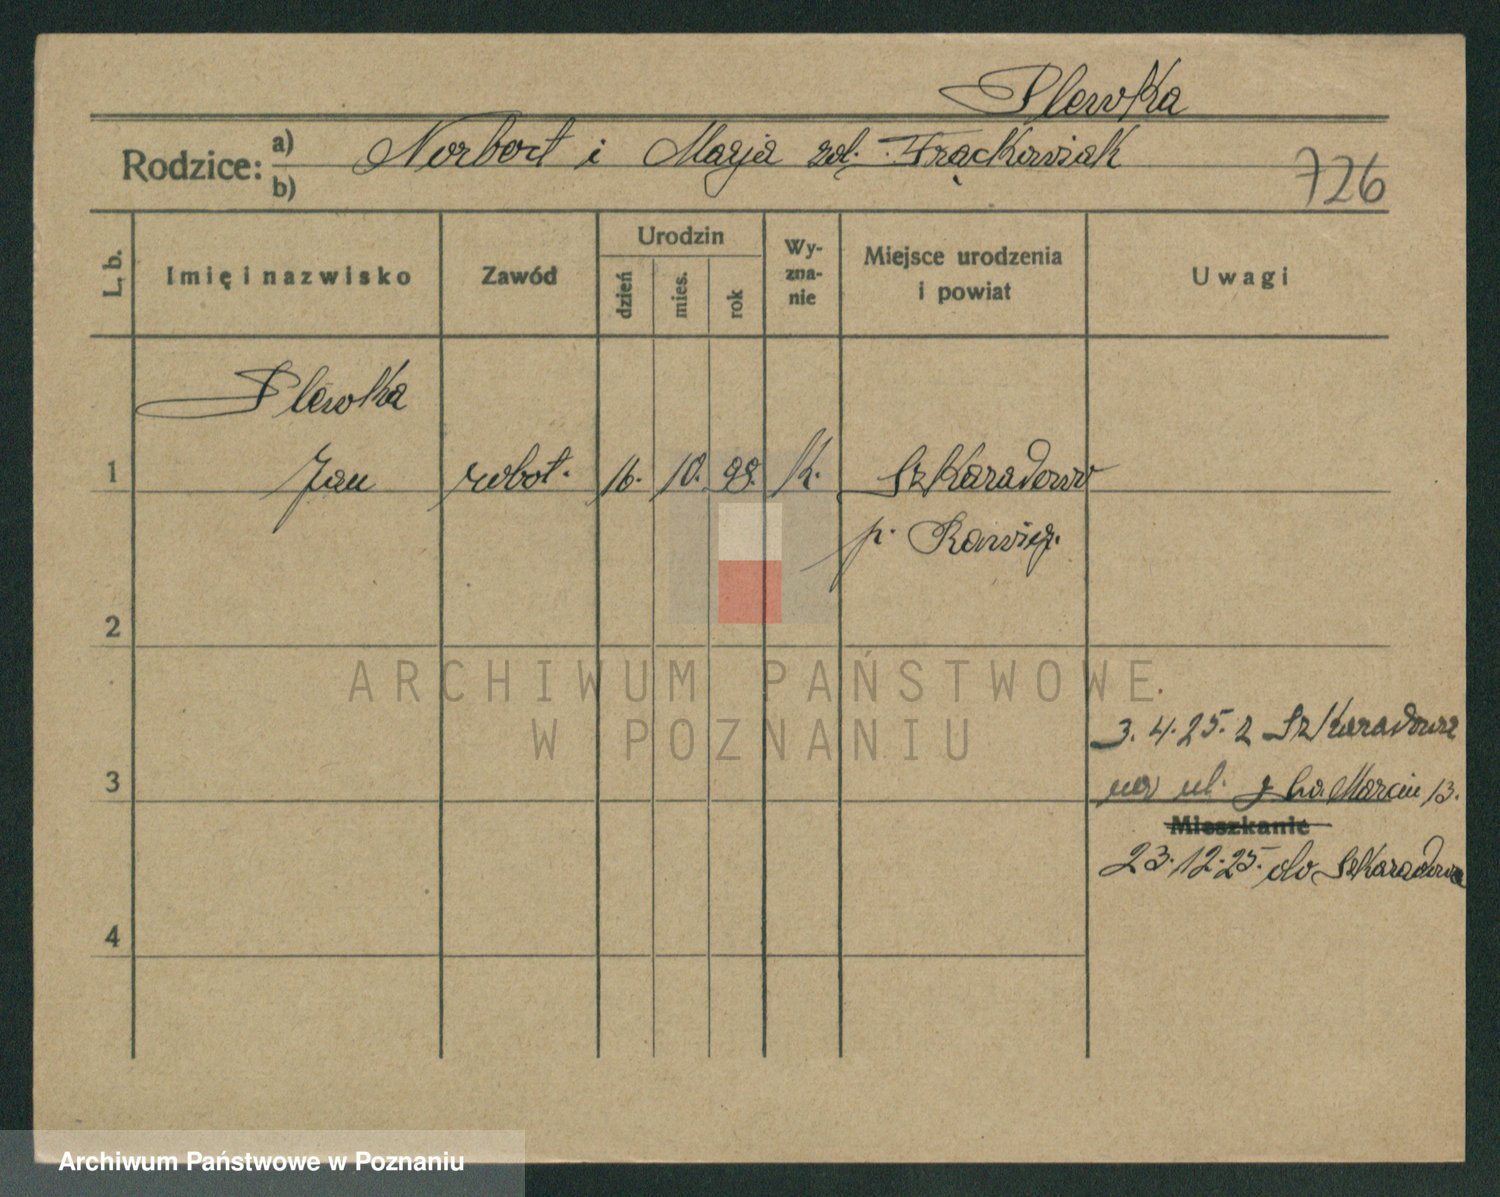 Plewka
Rodzice: a) b) Norbert i Marja zd. Frąckowiak
726
L. b. Imię i nazwisko Zawód Urodzin dzień mies. rok Wy-zna-nie Miejsce urodzenia i powiat Uwagi
Plewka
1 Jan robot. 16. 10. 98. K. Szkaradowo
p. Rawicz.
2
ARCHIWUM PAŃSTWOWE
W POZNANIU
3. 4. 25. z Szkaradowa
3 na ul. Św. Marcin 13.
Mieszkanie
23. 12. 25. do Szkaradowa
4
Archiwum Państwowe w Poznaniu